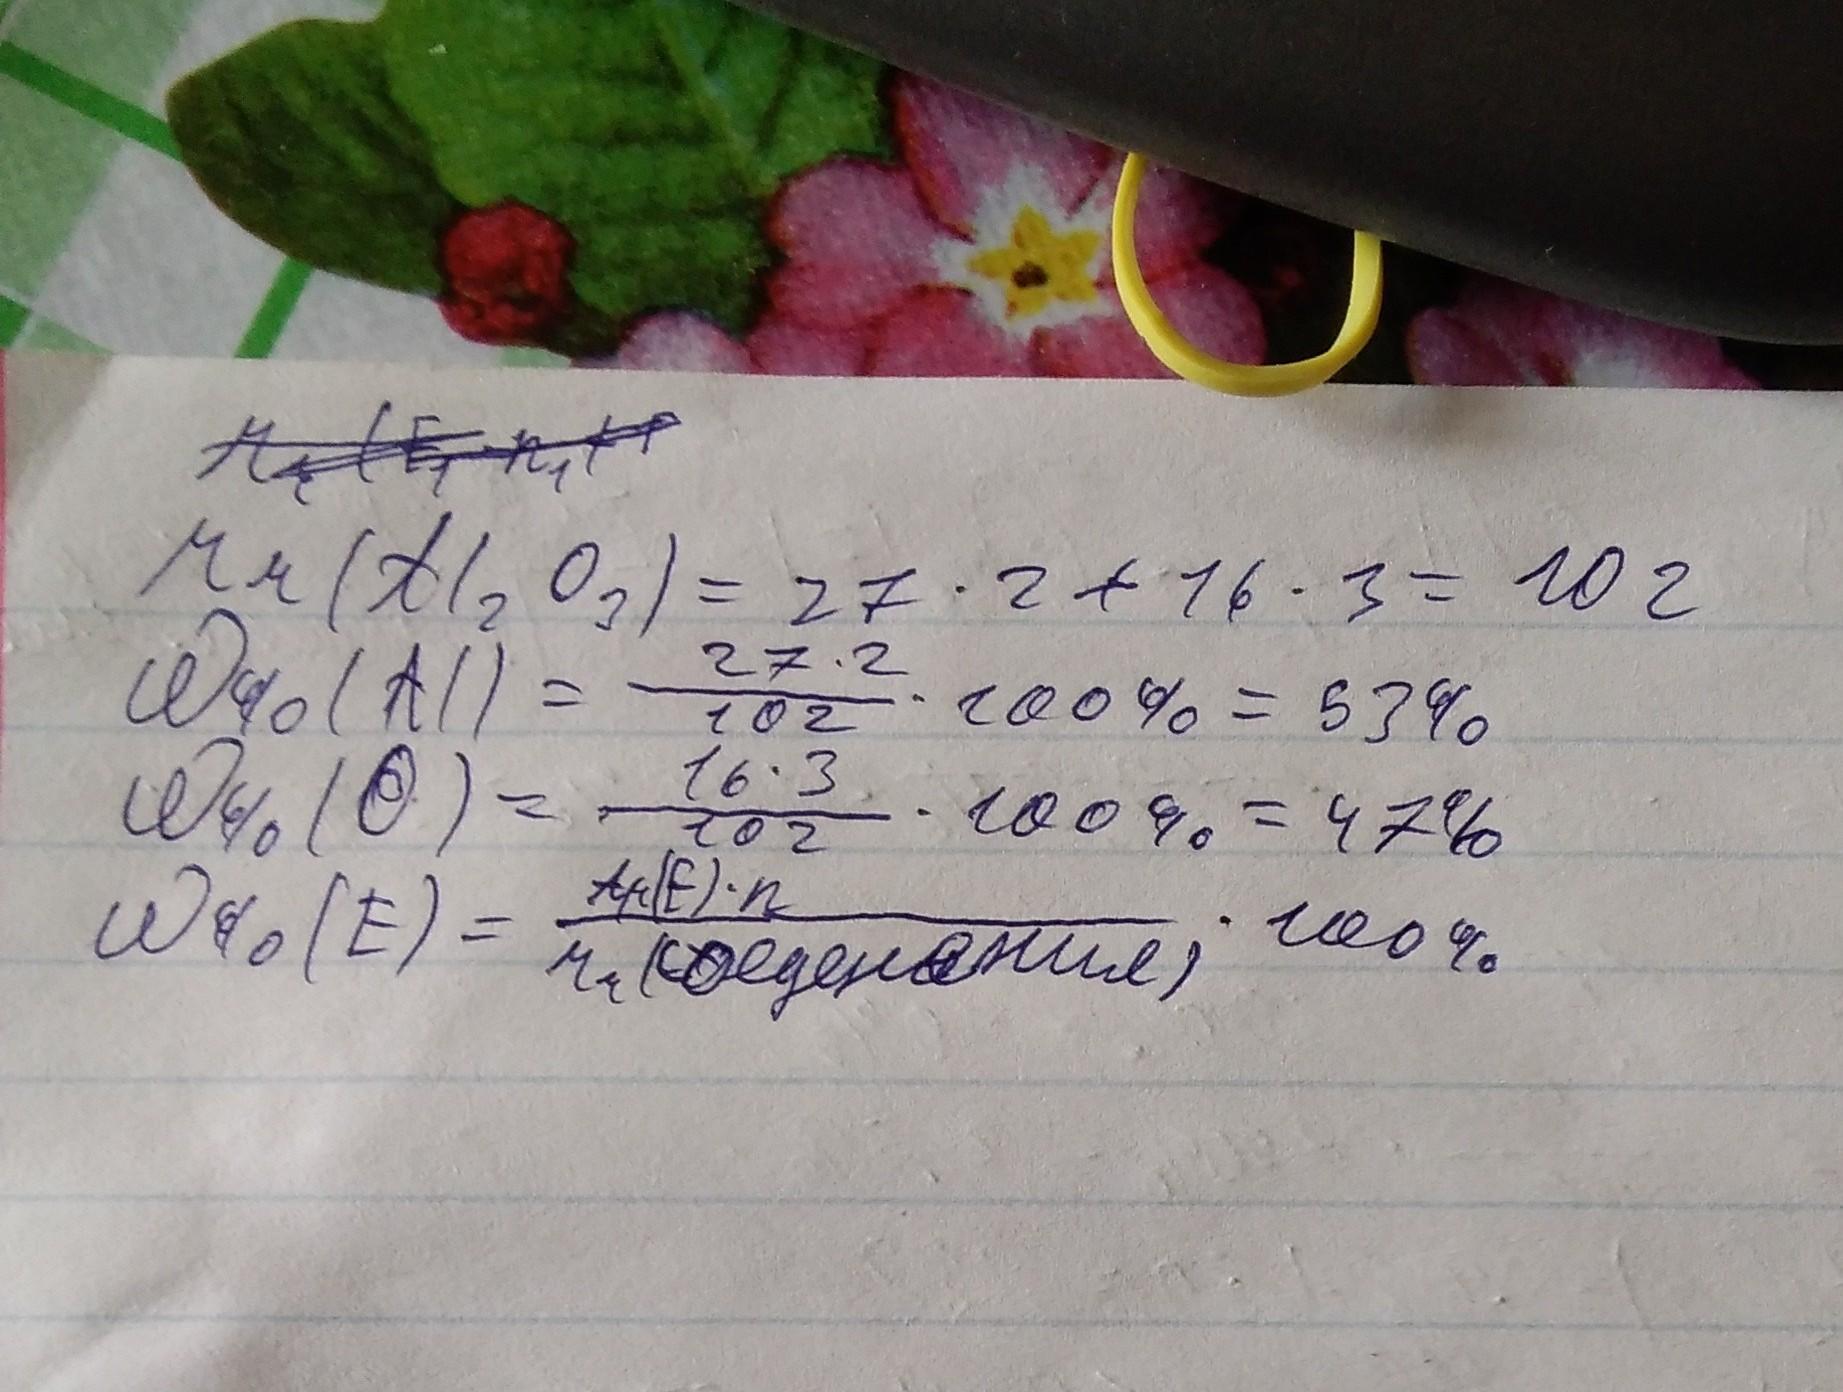 Mr(Al₂O₃) = 27 · 2 + 16 · 3 = 102
W%(Al) = 27·2/102 · 100% = 53%
W%(O) = 16·3/102 · 100% = 47%
W%(E) = Ar(E)·n/Mr(соединения) · 100%